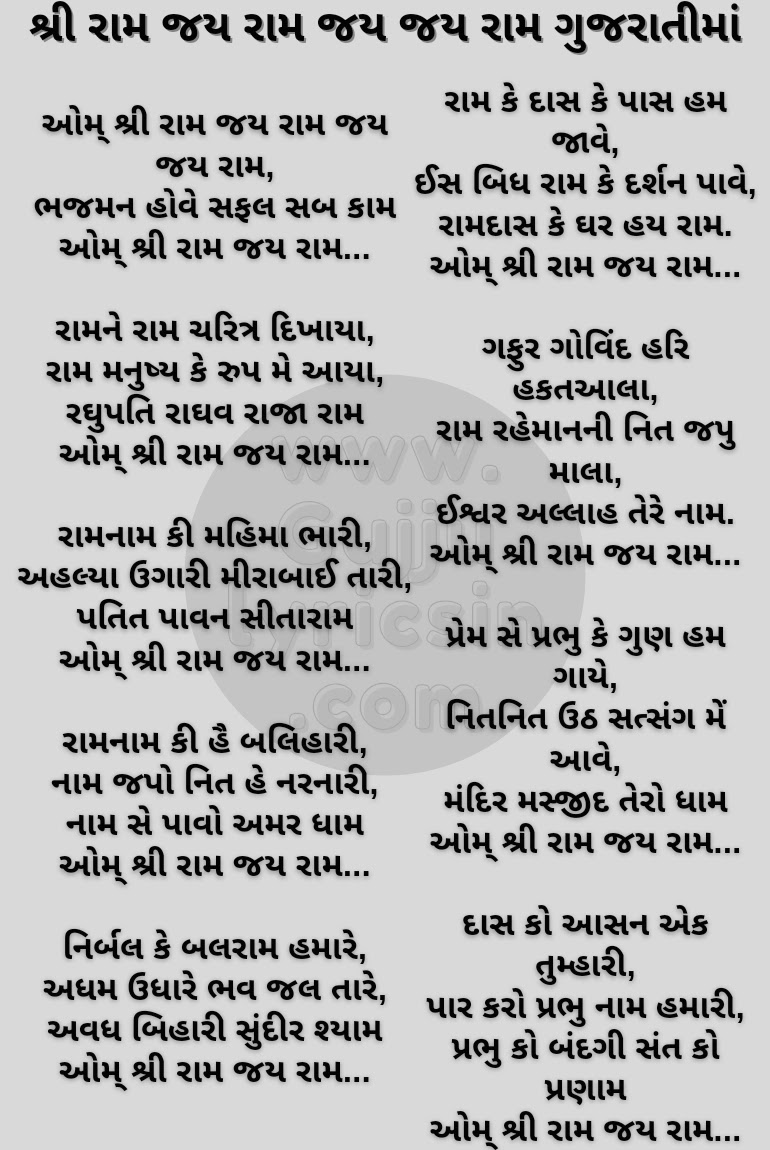 શ્રી રામ જય રામ જય જય રામ ગુજરાતીમાં
ઓમ્ શ્રી રામ જય રામ જય
જય રામ,
ભજમન હોવે સફલ સબ કામ
ઓમ્ શ્રી રામ જય રામ...
રામને રામ ચરિત્ર દિખાયા,
રામ મનુષ્ય કે રુપ મે આયા,
રઘુપતિ રાઘવ રાજા રામ
ઓમ્ શ્રી રામ જય રામ...
રામનામ કી મહિમા ભારી,
અહલ્યા ઉગારી મીરાબાઈ તારી,
પતિત પાવન સીતારામ
ઓમ્ શ્રી રામ જય રામ...
રામનામ કી હૈ બલિહારી,
નામ જપો નિત હે નરનારી,
નામ સે પાવો અમર ધામ
ઓમ્ શ્રી રામ જય રામ...
નિર્બલ કે બલરામ હમારે,
અધમ ઉધારે ભવ જલ તારે,
અવધ બિહારી સુંદીર શ્યામ
ઓમ્ શ્રી રામ જય રામ...
રામ કે દાસ કે પાસ હમ
જાવે,
ઈસ બિધ રામ કે દર્શન પાવે,
રામદાસ કે ઘર હય રામ.
ઓમ્ શ્રી રામ જય રામ...
ગફુર ગોવિંદ હરિ
હકતઆલા,
રામ રહેમાનની નિત જપુ
માલા,
ઈશ્વર અલ્લાહ તેરે નામ.
ઓમ્ શ્રી રામ જય રામ...
પ્રેમ સે પ્રભુ કે ગુણ હમ
ગાયે,
નિતનિત ઉઠ સત્સંગ મેં
આવે,
મંદિર મસ્જીદ તેરો ધામ
ઓમ્ શ્રી રામ જય રામ...
દાસ કો આસન એક
તુમ્હારી,
પાર કરો પ્રભુ નામ હમારી,
પ્રભુ કો બંદગી સંત કો
પ્રણામ
ઓમ્ શ્રી રામ જય રામ...
www.
Gujju
lyricsin
.com